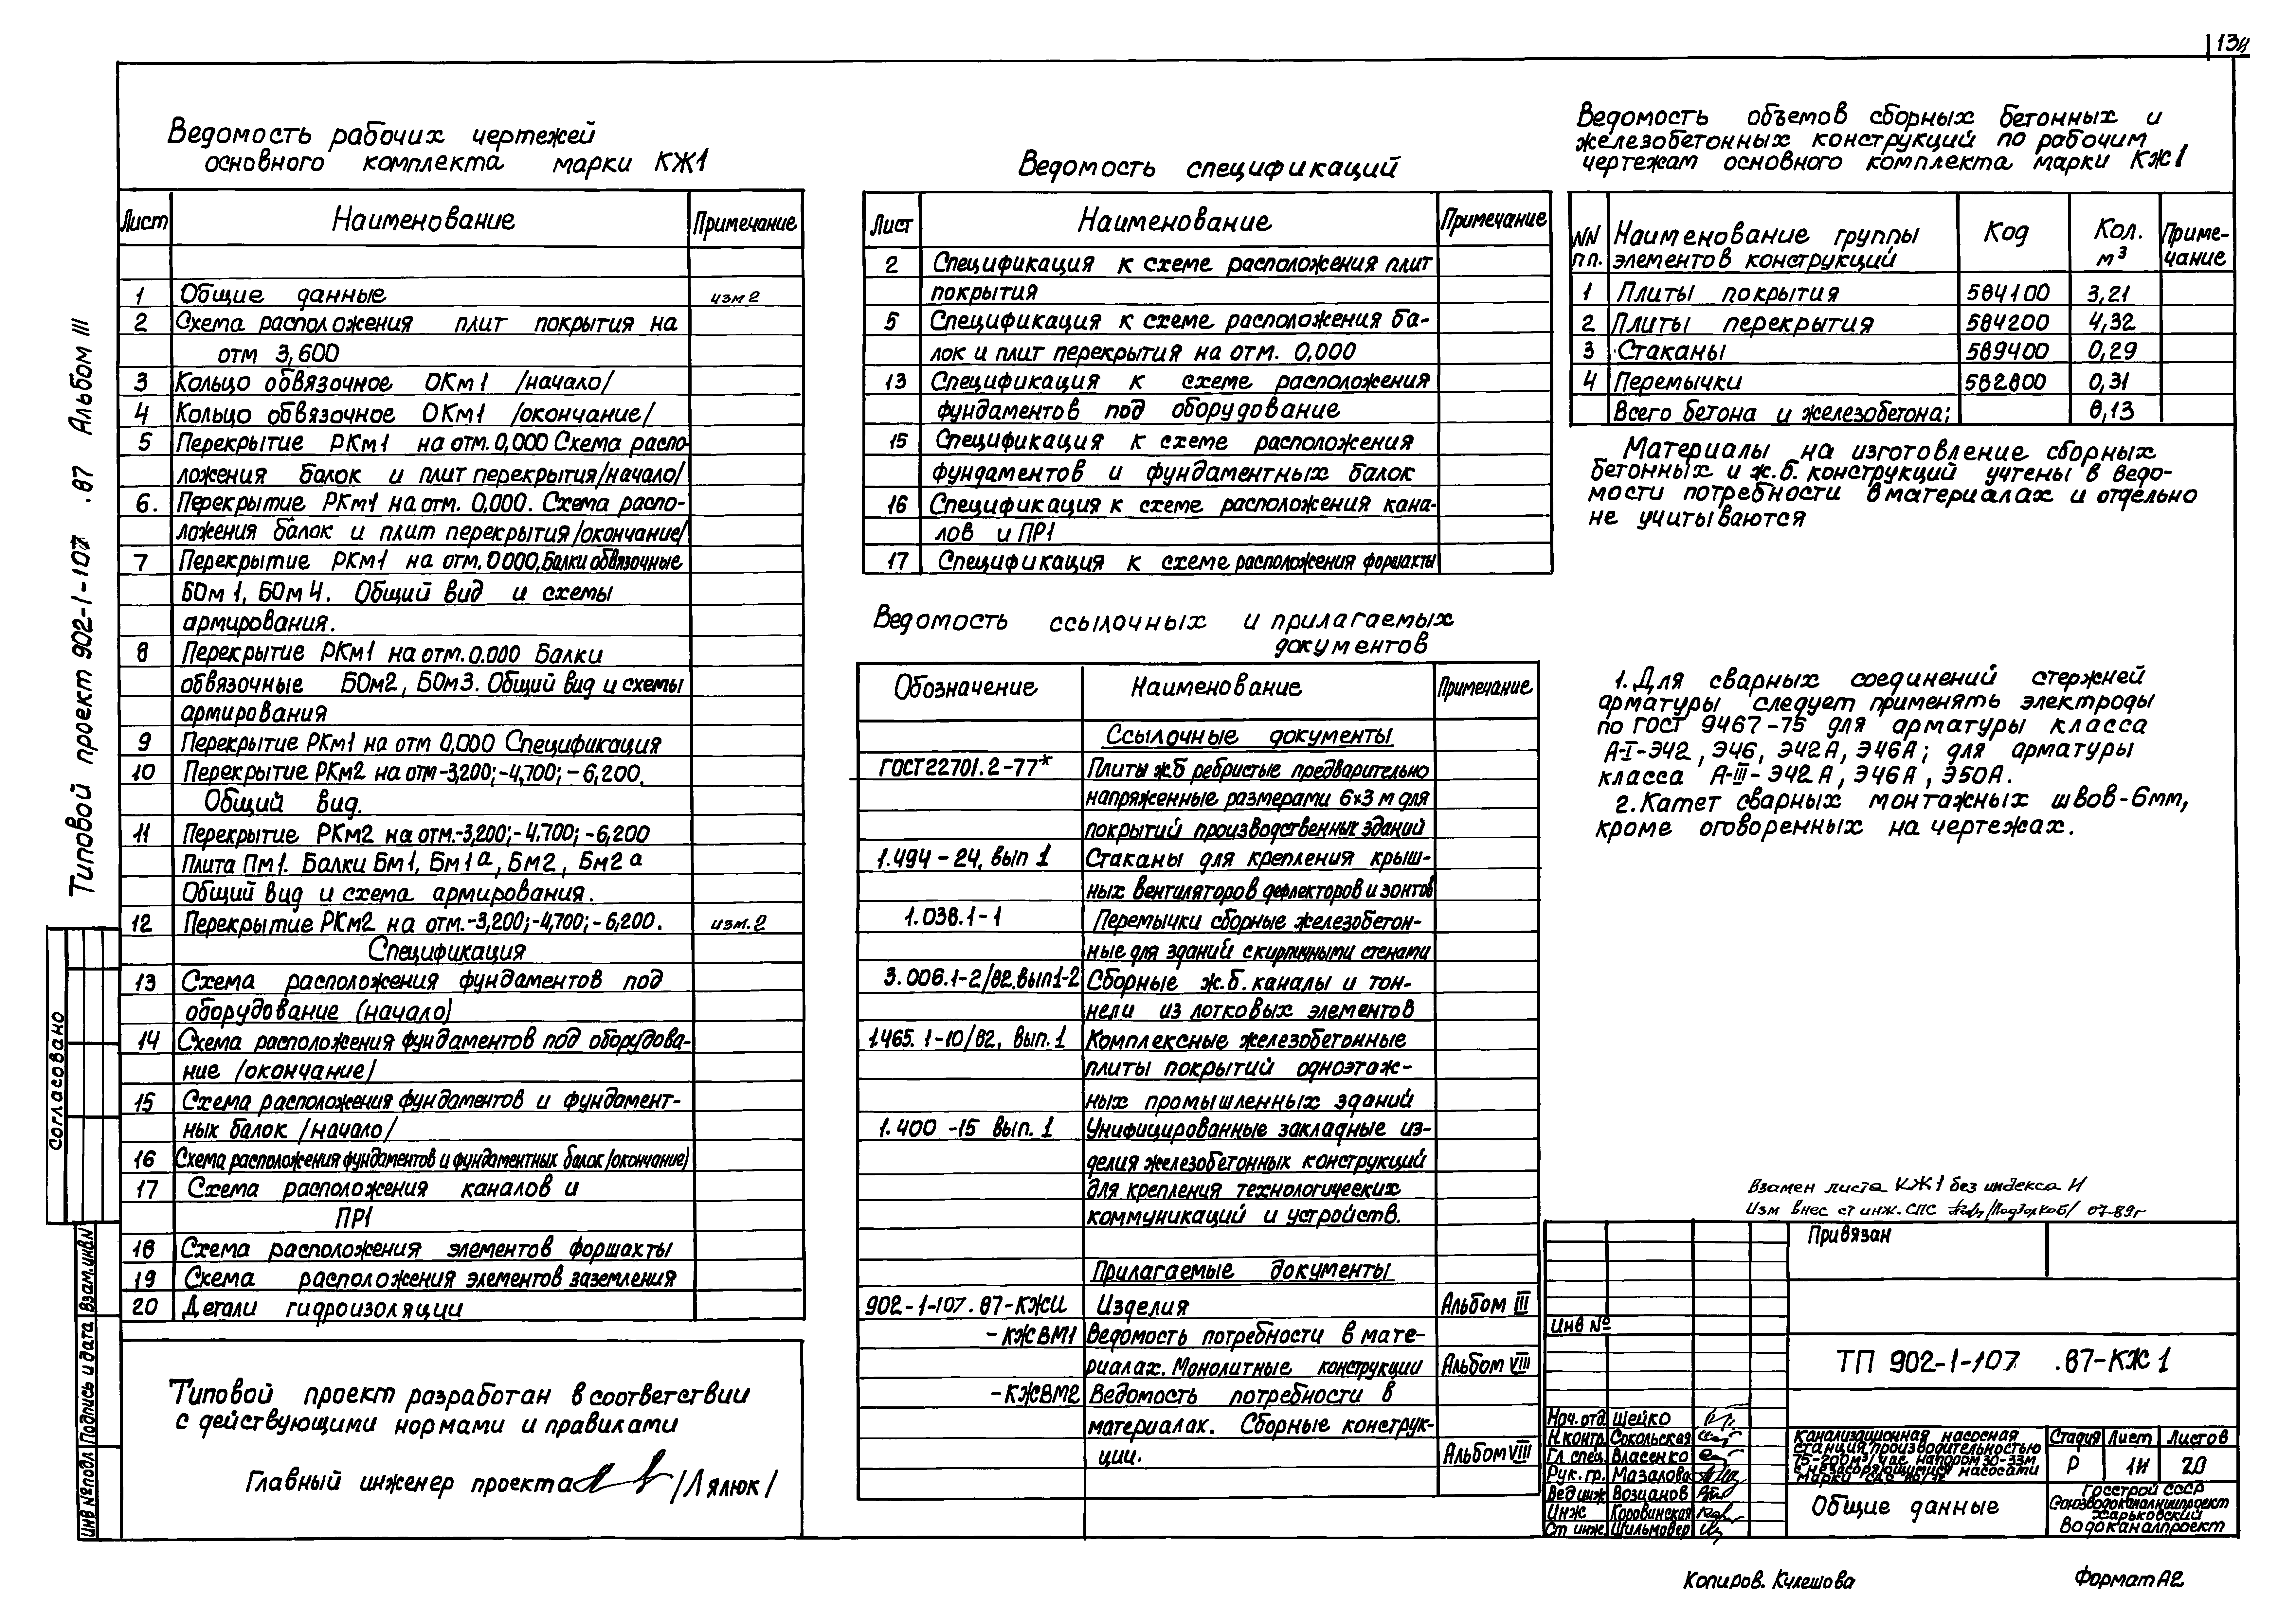 13и
Ведомость рабочих чертежей
основного комплекта марки КЖ1
Лист Наименование Примечание
1 Общие данные изм 2
2 Схема расположения плит покрытия на
отм 3,600
3 Кольцо обвязочное ОКм1 /начало/
4 Кольцо обвязочное ОКм1 /окончание/
5 Перекрытие РКм1 на отм. 0,000 Схема распо-
ложения балок и плит перекрытия/начало/
6. Перекрытие РКм1 на отм. 0,000. Схема распо-
ложения балок и плит перекрытия/окончание/
7 Перекрытие РКм1 на отм. 0 000. Балки обвязочные
БОм 1, БОм 4. Общий вид и схемы
армирования.
8 Перекрытие РКм1 на отм. 0.000 Балки
обвязочные БОм2, БОм3. Общий вид и схемы
армирования
9 Перекрытие РКм1 на отм 0,000 Спецификация
10 Перекрытие РКм2 на отм -3,200; -4,700; -6,200.
Общий вид.
11 Перекрытие РКм2 на отм.-3,200; -4.700; -6,200
Плита Пм1. Балки Бм1, Бм1а, Бм2, Бм2а
Общий вид и схема армирования.
12 Перекрытие РКм2 на отм.-3,200; -4,700; -6,200. изм. 2
Спецификация
13 Схема расположения фундаментов под
оборудование (начало)
14 Схема расположения фундаментов под оборудова-
ние /окончание/
15 Схема расположения фундаментов и фундамент-
ных балок /начало/
16 Схема расположения фундаментов и фундаментных балок /окончание)
17 Схема расположения каналов и
ПР1
18 Схема расположения элементов форшахты
19 Схема расположения элементов заземления
20 Детали гидроизоляции
Типовой проект разработан в соответствии
с действующими нормами и правилами
Главный инженер проекта /Лялюк/
Ведомость спецификаций
Лист Наименование Примечание
2 Спецификация к схеме расположения плит
покрытия
5 Спецификация к схеме расположения ба-
лок и плит перекрытия на отм. 0,000
13 Спецификация к схеме расположения
фундаментов под оборудование
15 Спецификация к схеме расположения
фундаментов и фундаментных балок
16 Спецификация к схеме расположения кана-
лов и ПР1
17 Спецификация к схеме расположения форшахты
Ведомость ссылочных и прилагаемых
документов
Обозначение Наименование Примечание
Ссылочные документы
ГОСТ22701.2-77* Плиты ж.б ребристые предварительно
напряженные размерами 6х3 м для
покрытий производственных зданий
1.494-24, вып 1 Стаканы для крепления крыш-
ных вентиляторов дефлекторов и зонтов
1.038.1-1 Перемычки сборные железобетон-
ные для зданий с кирпичными стенами
3.006.1-2/82.вып1-2 Сборные ж.б. каналы и тон-
нели из лотковых элементов
1.465.1-10/82, вып. 1 Комплексные железобетонные
плиты покрытий одноэтаж-
ных промышленных зданий
1.400-15 вып. 1 Унифицированные закладные из-
делия железобетонных конструкций
для крепления технологических
коммуникаций и устройств.
Прилагаемые документы
902-1-107.87-КЖИ Изделия Альбом III
-КЖВМ1 Ведомость потребности в мате-
риалах. Монолитные конструкции Альбом VIII
-КЖВМ2 Ведомость потребности в
материалах. Сборные конструк-
ции. Альбом VIII
Ведомость объемов сборных бетонных и
железобетонных конструкций по рабочим
чертежам основного комплекта марки КЖ1
NN пп. Наименование группы элементов конструкций Код Кол. м³ Приме-чание
1 Плиты покрытия 584100 3,21
2 Плиты перекрытия 584200 4,32
3 Стаканы 589400 0,29
4 Перемычки 582800 0,31
Всего бетона и железобетона: 8,13
Материалы на изготовление сборных
бетонных и ж.б. конструкций учтены в ведо-
мости потребности в материалах и отдельно
не учитываются
1. Для сварных соединений стержней
арматуры следует применять электроды
по ГОСТ 9467-75 для арматуры класса
А-I-Э42, Э46, Э42А, Э46А; для арматуры
класса А-III-Э42А, Э46А, Э50А.
2. Катет сварных монтажных швов-6мм,
кроме оговоренных на чертежах.
Взамен листа КЖ1 без индекса И
Изм внес ст инж. СПС 07-89г
Привязан
Инв №
ТП 902-1-107 .87-КЖ1
Нач. отд. Шейко
Н.контр. Сокольская
Гл спец. Власенко
Рук. гр. Мазалова
Вед инж Возианов
Инж Коровинская
Ст инж. Шильмовер
Канализационная насосная
станция производительностью
75-200м³/час, напором 30-33м
с незасоряющимися насосами
марки
Стадия Лист Листов
Р 1и 20
Общие данные
Госстрой СССР
Союзводоканалниипроект
Харьковский
Водоканалпроект
Копиров. Кулешова
Формат А2
Типовой проект 902-1-107 .87 Альбом III
Согласовано
Взам. инв N
Подпись и дата
Инв № подл